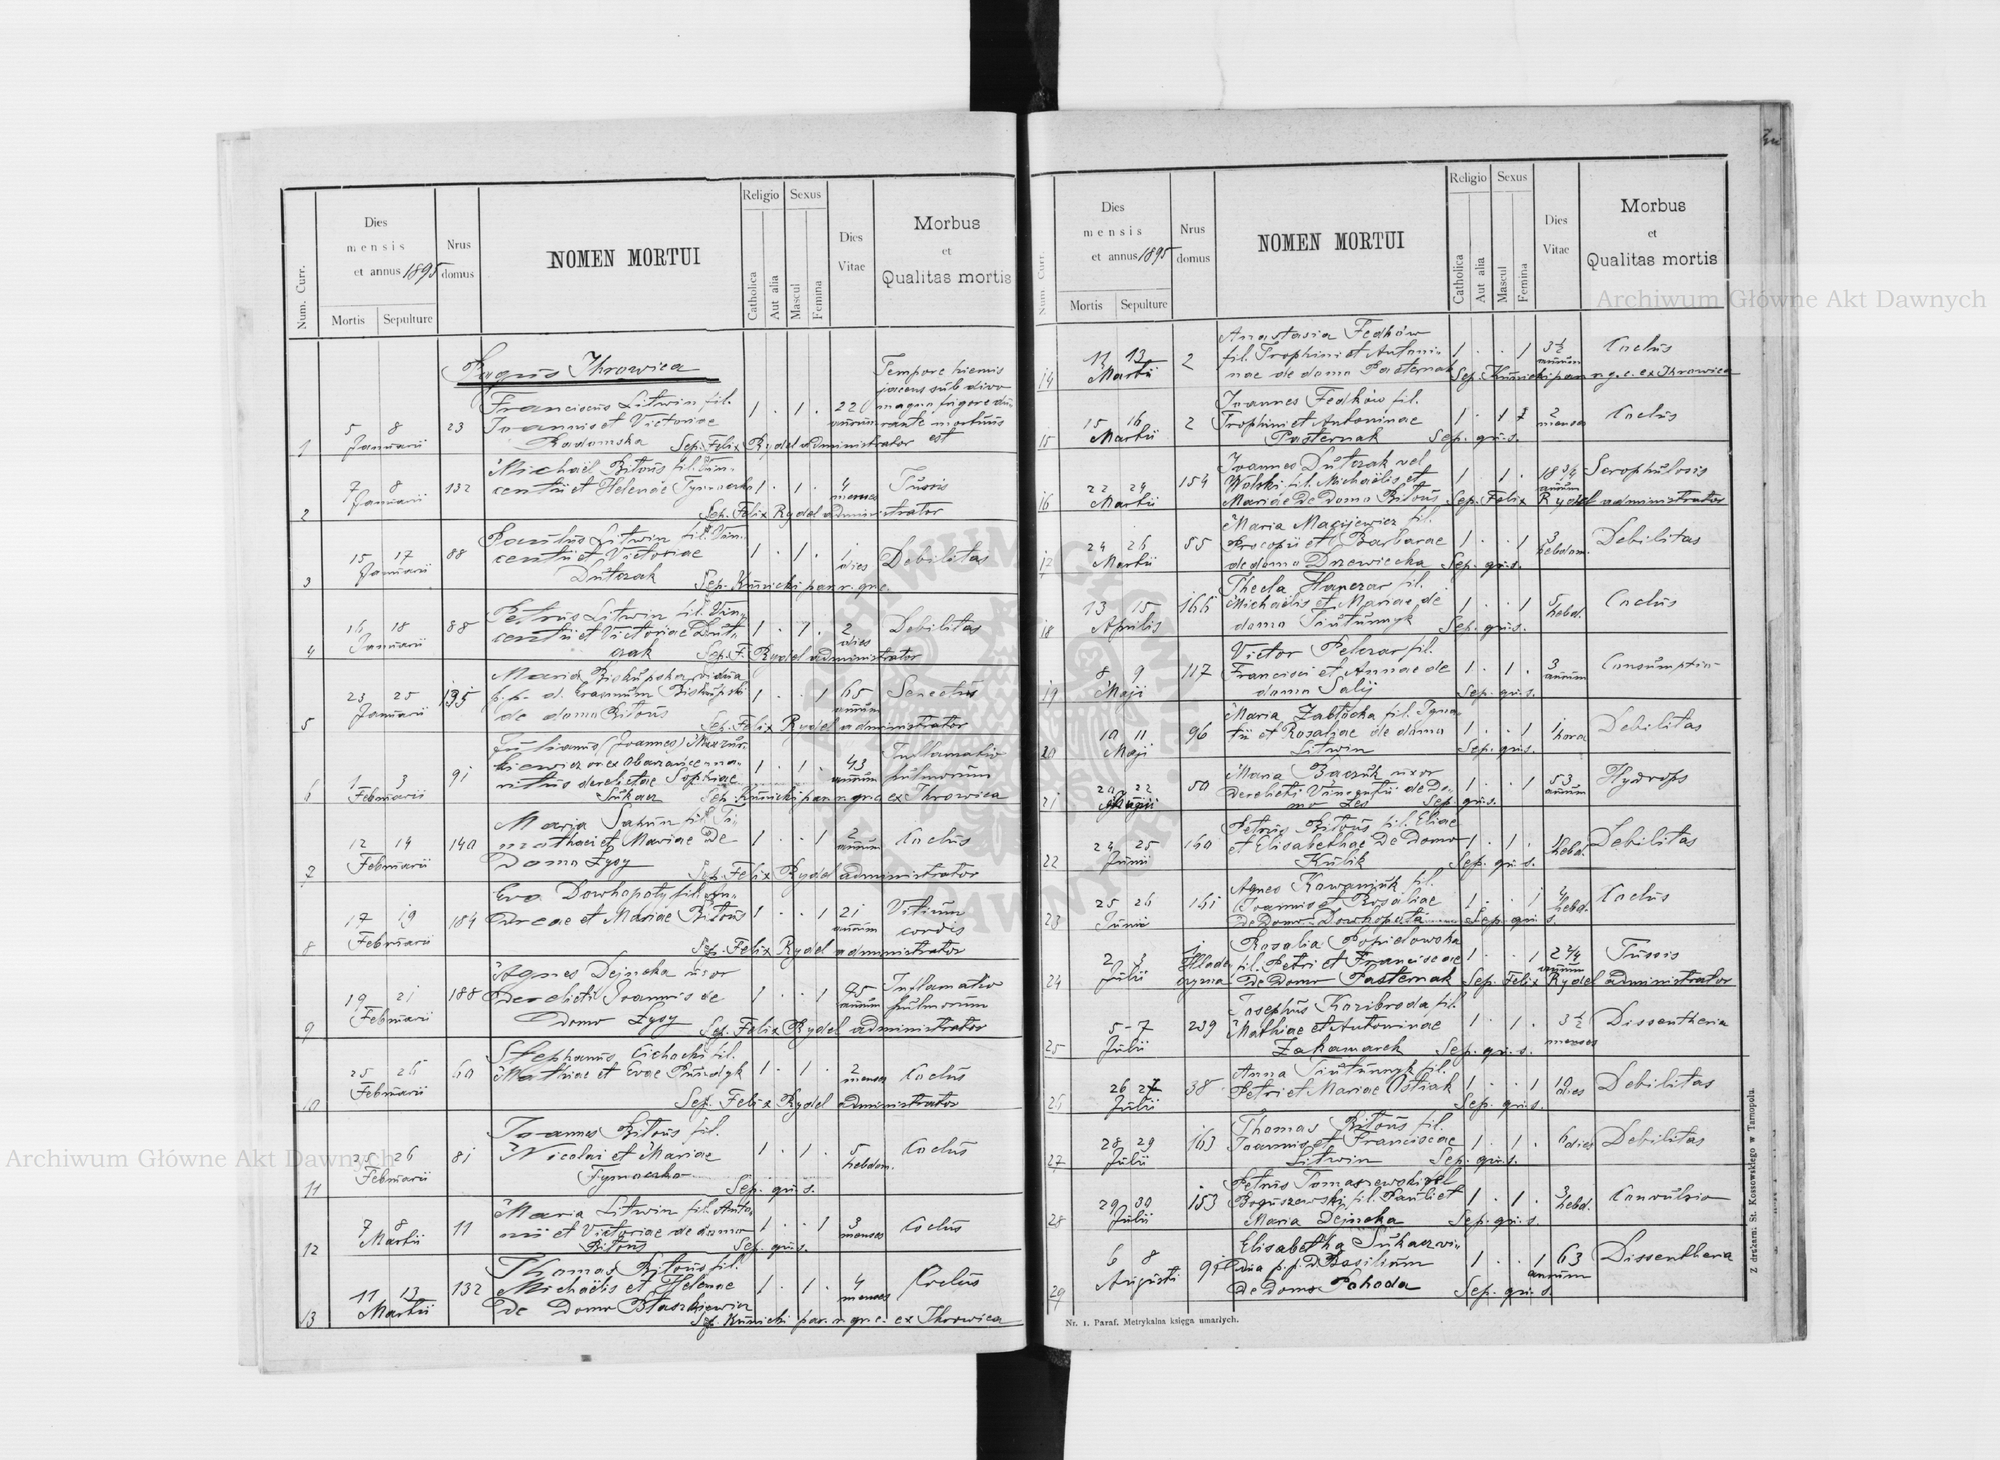 Num. Curr.
Dies
mensis
et annus 1895
Mortis Sepulture
Nrus
domus
NOMEN MORTUI
Religio
Catholica
Aut alia
Sexus
Mascul
Femina
Dies
Vitae
Morbus
et
Qualitas mortis
Pagus Ihrowica
1 5 8 Januarii 23
Franciscus Litwin fil.
Joannis et Victoriae
Radomska
1 . 1 . 22 annorum
Tempore hiemis
jacens sub divo
magno frigore du-
rante mortuus
est
Sep. Felix Rydel administrator
2 7 8 Januarii 132
Michaël Bitous fil. Vin-
centii et Helenae
1 . 1 . 4 menses Tussis
Sep. Felix Rydel administrator
3 15 17 Januarii 88
Paulus Litwin fil. Vin-
centii et Victoriae
Dutczak
1 . 1 . 1 dies Debilitas
Sep. Kunicki par. r. gr. c.
4 16 18 Januarii 88
Petrus Litwin fil. Vin-
centii et Victoriae Dut-
czak
1 . 1 . 2 dies Debilitas
Sep. F. Rydel administrator
5 23 25 Januarii 135
Maria Biskupska vidua
p. p. d. Erasmum Biskupski
de domo Bitous
1 . . 1 65 annorum Senectus
Sep. Felix Rydel administrator
6 1 3 Februarii 91
Julianus (Joannes) Mazur-
kiewicz
ritus derelictae Sophiae
Sukacz
1 . 1 . 43 annorum
Inflamatio
pulmonum
Sep. Kunicki par. r. gr. c. ex Ihrowica
7 12 14 Februarii 140
Maria Sahun fil. Ti-
mothaei et Mariae De
Domo Łysy
1 . . 1 2 annorum Coclus
Sep. Felix Rydel administrator
8 17 19 Februarii 184
Eva Dowhopoły fil. An-
dreae et Mariae Bitous
1 . . 1 21 annorum
Vitium
cordis
Sep. Felix Rydel administrator
9 19 21 Februarii 188
Agnes Dejneka uxor
derelicti Joannis de
Domo Łysy
1 . . 1 annorum
Inflamatio
pulmonum
Sep. Felix Rydel administrator
10 25 26 Februarii 60
Stephanus Cichocki fil.
Mathiae et Evae Pundyk
1 . 1 . 2 menses Coclus
Sep. Felix Rydel administrator
11 25 26 Februarii 81
Joannes Bitous fil.
Nicolai et Mariae
Tymoczko
1 . 1 . 5 hebdom. Coclus
Sep. qui. s.
12 7 8 Martii 11
Maria Litwin fil. Anto-
nii et Victoriae de domo
Bitous
1 . . 1 3 menses Coclus
Sep. qui. s.
13 11 13 Martii 132
Thomas Bitous fil.
Michaëlis et Helenae
De Domo Błaszkiewicz
1 . 1 . 4 menses Coclus
Sep. Kunicki par. r. gr. c. ex Ihrowica
Num Curr.
Dies
mensis
et annus 1895
Mortis Sepulture
Nrus
domus
NOMEN MORTUI
Religio
Catholica
Aut alia
Sexus
Mascul
Femina
Dies
Vitae
Morbus
et
Qualitas mortis
14 12 13 Martii 2
Anastasia Fedków
fil. Trophini et Antoni-
nae de domo Pasternak
1 . . 1 3 1/2 annorum Coclus
Sep. Kunicki par. r. g. c. ex Ihrowica
15 15 16 Martii 2
Joannes Fedków fil.
Trophini et Antoninae
Pasternak
1 . 1 2 menses Coclus
Sep. qui. s.
16 22 24 Martii 154
Joannes Dutczak vel
Wolski fil. Michaëlis et
Mariae De Domo Bitous
1 . 1 . 18 3/4 annorum Scrophulosis
Sep. Felix Rydel administrator
17 24 26 Martii 55
Maria Macijewicz fil.
Procopii et Barbarae
de domo Drzewiecka
1 . . 1 3 hebdom. Debilitas
Sep. qui. s.
18 13 15 Aprilis 166
Thecla Hanczar fil.
Michaëlis et Mariae de
domo Tiutunnyk
1 . . 1 5 hebd. Coclus
Sep. qui. s.
19 8 9 Maji 117
Victor Pelczar fil.
Francisci et Annae de
domo Salij
1 . 1 . 3 annorum Consumptio
Sep. qui. s.
20 10 11 Maji 96
Maria Zabłocka fil. Igna-
tii et Rosaliae de domo
Litwin
1 . . 1 1 hora Debilitas
Sep. qui. s.
21 20 22 50
Maria Baczuk uxor
derelicti Vincentii de Do-
mo Les
1 . . 1 53 annorum Hydrops
Sep. qui. s.
22 24 25 Junii 160
Petrus Bitous fil. Eliae
et Elisabethae De Domo
Kulik
1 . 1 . 1 hebd. Debilitas
Sep. qui. s.
23 25 26 Junii 161
Agnes Kowaniuk fil.
Joannis et Rosaliae
De Domo Dowhopoła
1 . . 1 4 hebd. Coclus
Sep. qui s.
24 2 3 Julii
Rosalia Popielowska
fil. Petri et Franciscae
De Domo Pasternak
1 . . 1 2 2/4 annorum Tussis
Sep. Felix Rydel administrator
25 5 - 7 Julii 239
Josephus Kozibroda fil.
Mathiae et Antoninae
Zakamarek
1 . 1 . 3 1/2 menses Dissentheria
Sep. qui. s.
26 26 27 Julii 38
Anna Tiutunnyk fil.
Petri et Mariae Ostiak
1 . . 1 10 dies Debilitas
Sep. qui. s.
27 28 29 Julii 163
Thomas Bitous fil.
Joannis et Franciscae
Litwin
1 . 1 . 6 dies Debilitas
Sep. qui. s.
28 29 30 Julii 153
Petrus Tomaszewski vel
Boguszewski fil. Pauli et
Maria Dejneka
1 . 1 . 3 hebd. Convulsio
Sep. qui. s.
29 6 8 Augusti 91
Elisabetha Sukacz vi-
dua p. p. D. Basilium
De Domo Pohoda
1 . . 1 63 annorum Dissentheria
Sep. qui. s.
Nr. 1. Paraf. Metrykalna księga umarłych.
Z drukarni St. Kossowskiego w Tarnopolu.
Archiwum Główne Akt Dawnych
Archiwum Główne Akt Dawnych
ARCHIWUM GŁÓWNE AKT DAWNYCH W WARSZAWIE